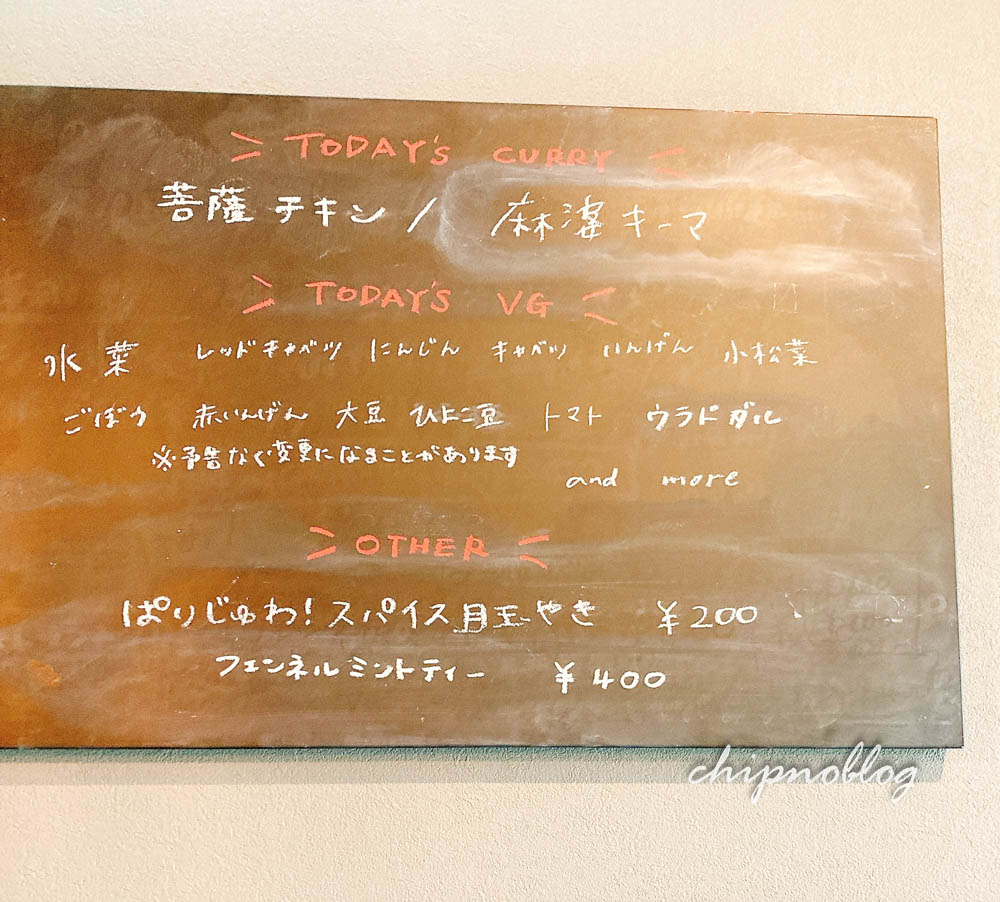 TODAY's CURRY
菩薩チキン / 麻婆キーマ
TODAY'S VG
水菜 レッドキャベツ にんじん キャベツ いんげん 小松菜
ごぼう 赤いんげん 大豆 ひよこ豆 トマト ウラドダル
※予告なく変更になることがあります
and more
OTHER
ぱりじゅわ!スパイス目玉やき ¥200
フェンネルミントティー ¥400
chipnoblog